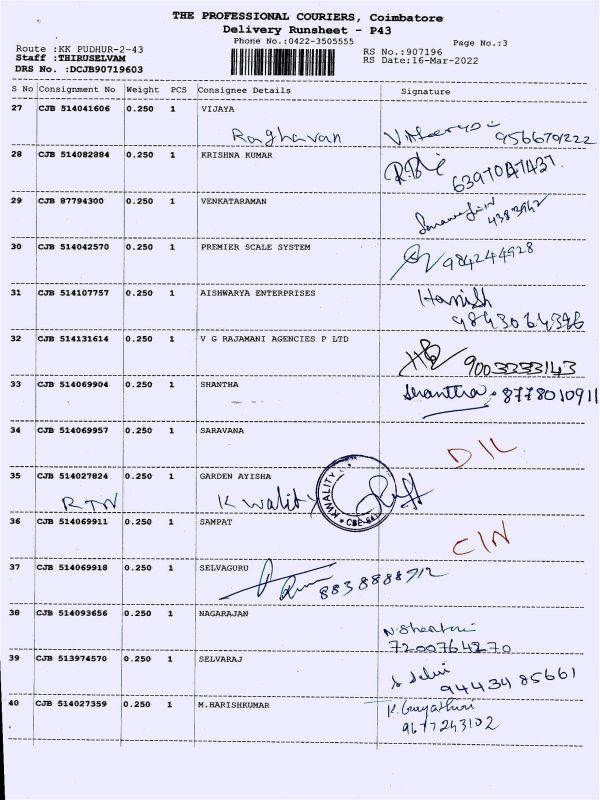 THE PROFESSIONAL COURIERS, Coimbatore
Delivery Runsheet - P43
Phone No.:0422-3505555
Page No.:3
Route :KK PUDHUR-2-43
RS No.:907196
Staff :THIRUSELVAM
RS Date:16-Mar-2022
DRS No. :DCJB90719603
S No Consignment No Weight PCS Consignee Details Signature
27 CJB 514041606 0.250 1 VIJAYA
Raghavan 9566701222
28 CJB 514082884 0.250 1 KRISHNA KUMAR
6397047437
29 CJB 87794300 0.250 1 VENKATARAMAN
4383942
30 CJB 514042570 0.250 1 PREMIER SCALE SYSTEM
984244928
31 CJB 514107757 0.250 1 AISHWARYA ENTERPRISES
Harish
9843064396
32 CJB 514131614 0.250 1 V G RAJAMANI AGENCIES P LTD
9003333143
33 CJB 514069904 0.250 1 SHANTHA
Shantha 8778010911
34 CJB 514069957 0.250 1 SARAVANA
D/L
35 CJB 514027824 0.250 1 GARDEN AYISHA
RTN Kwality KWALITY
36 CJB 514069911 0.250 1 SAMPAT
C/N
37 CJB 514069918 0.250 1 SELVAGURU
8838888712
38 CJB 514093656 0.250 1 NAGARAJAN
7200764270
39 CJB 513974570 0.250 1 SELVARAJ
S Selvi
9443485661
40 CJB 514027359 0.250 1 M.HARISHKUMAR
K. Gayathri
9677243102